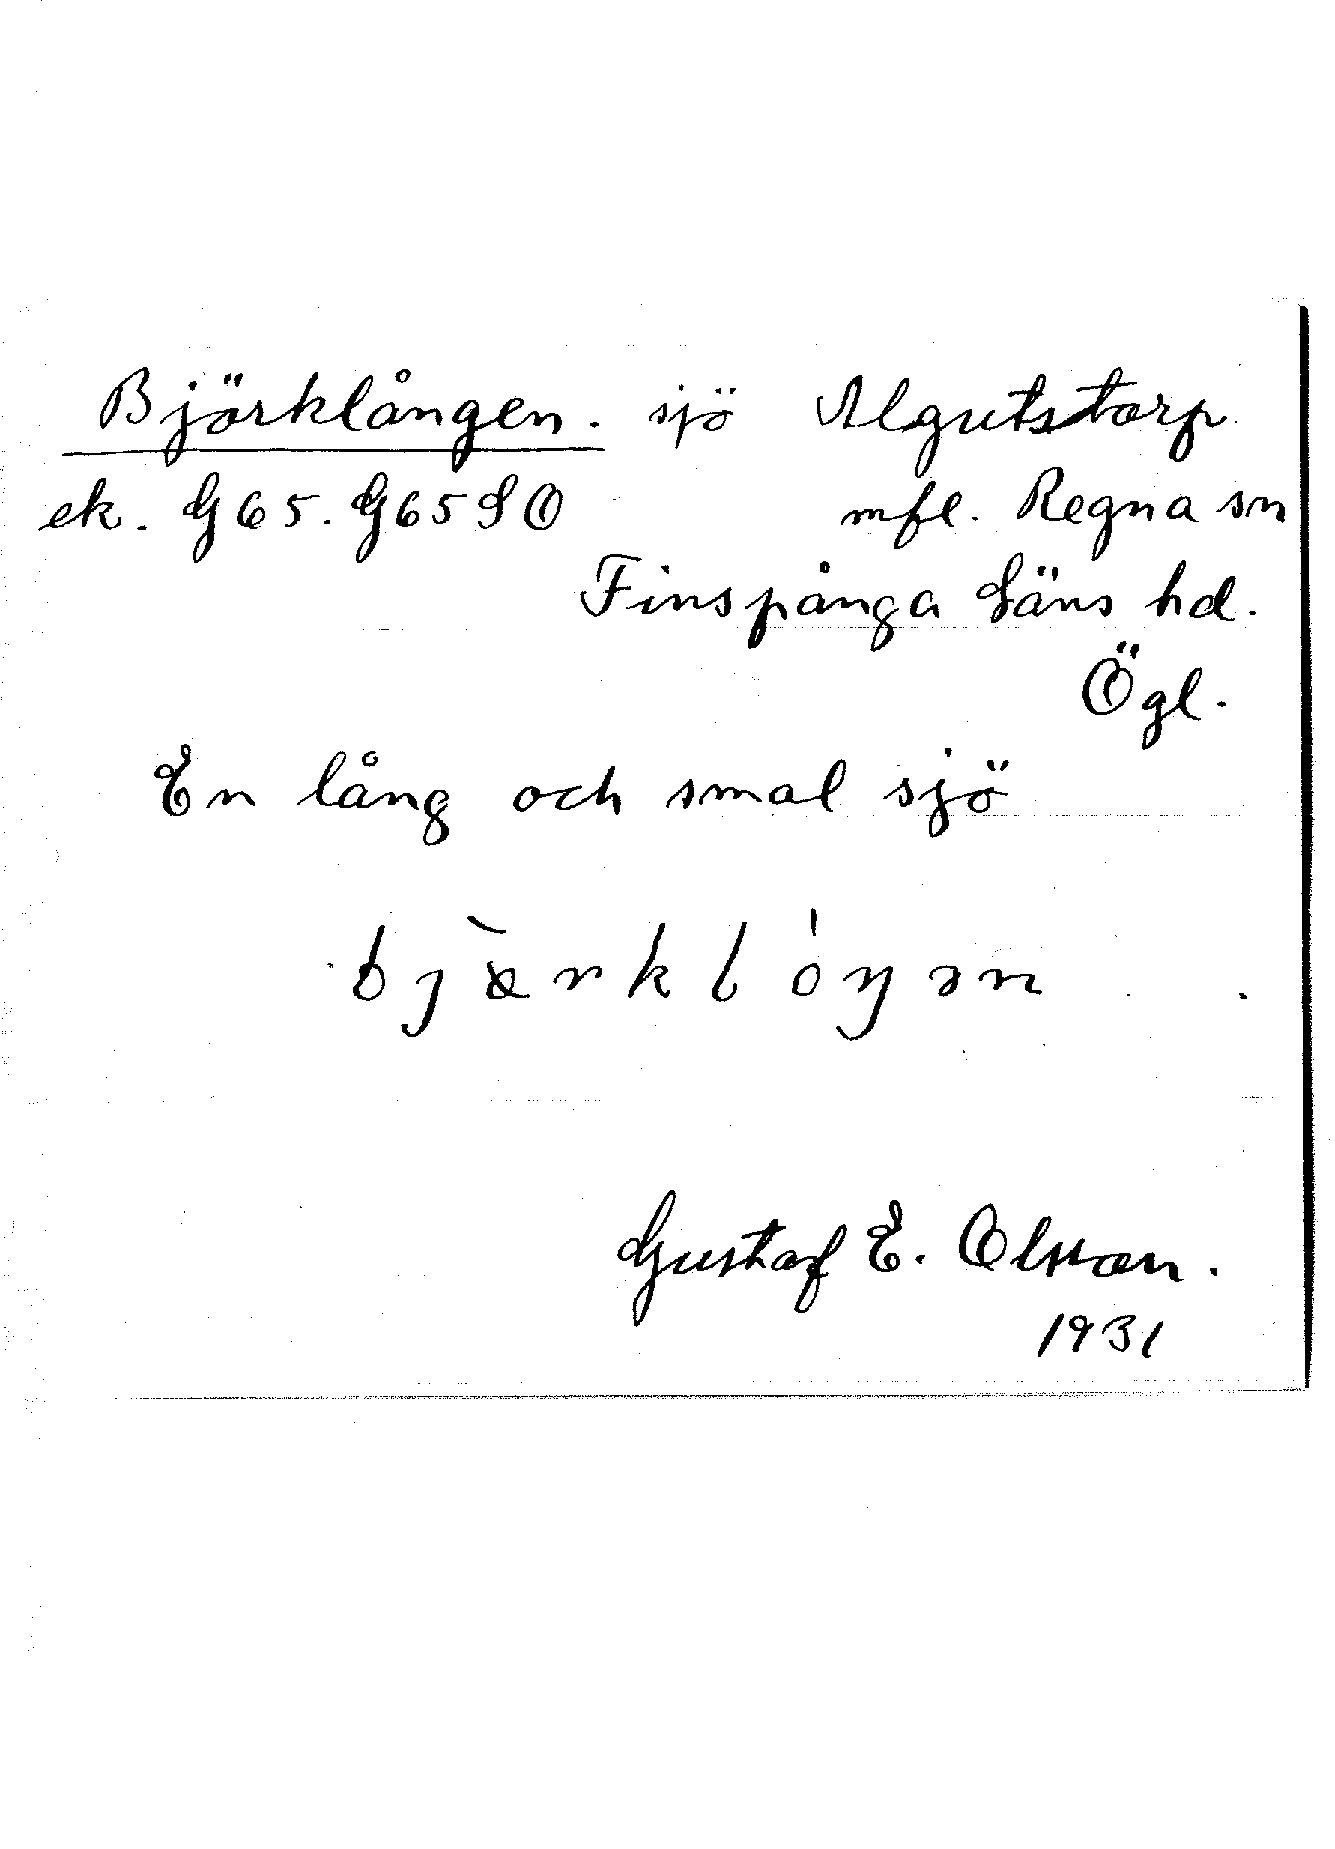 Björklången. sjö Algutstorp
ek. G65. G65SO mfl. Regna sn
Finspånga Läns hd.
Ögl.
En lång och smal sjö
bjæ̀rklóŋən
Gustaf E. Olsson.
1931